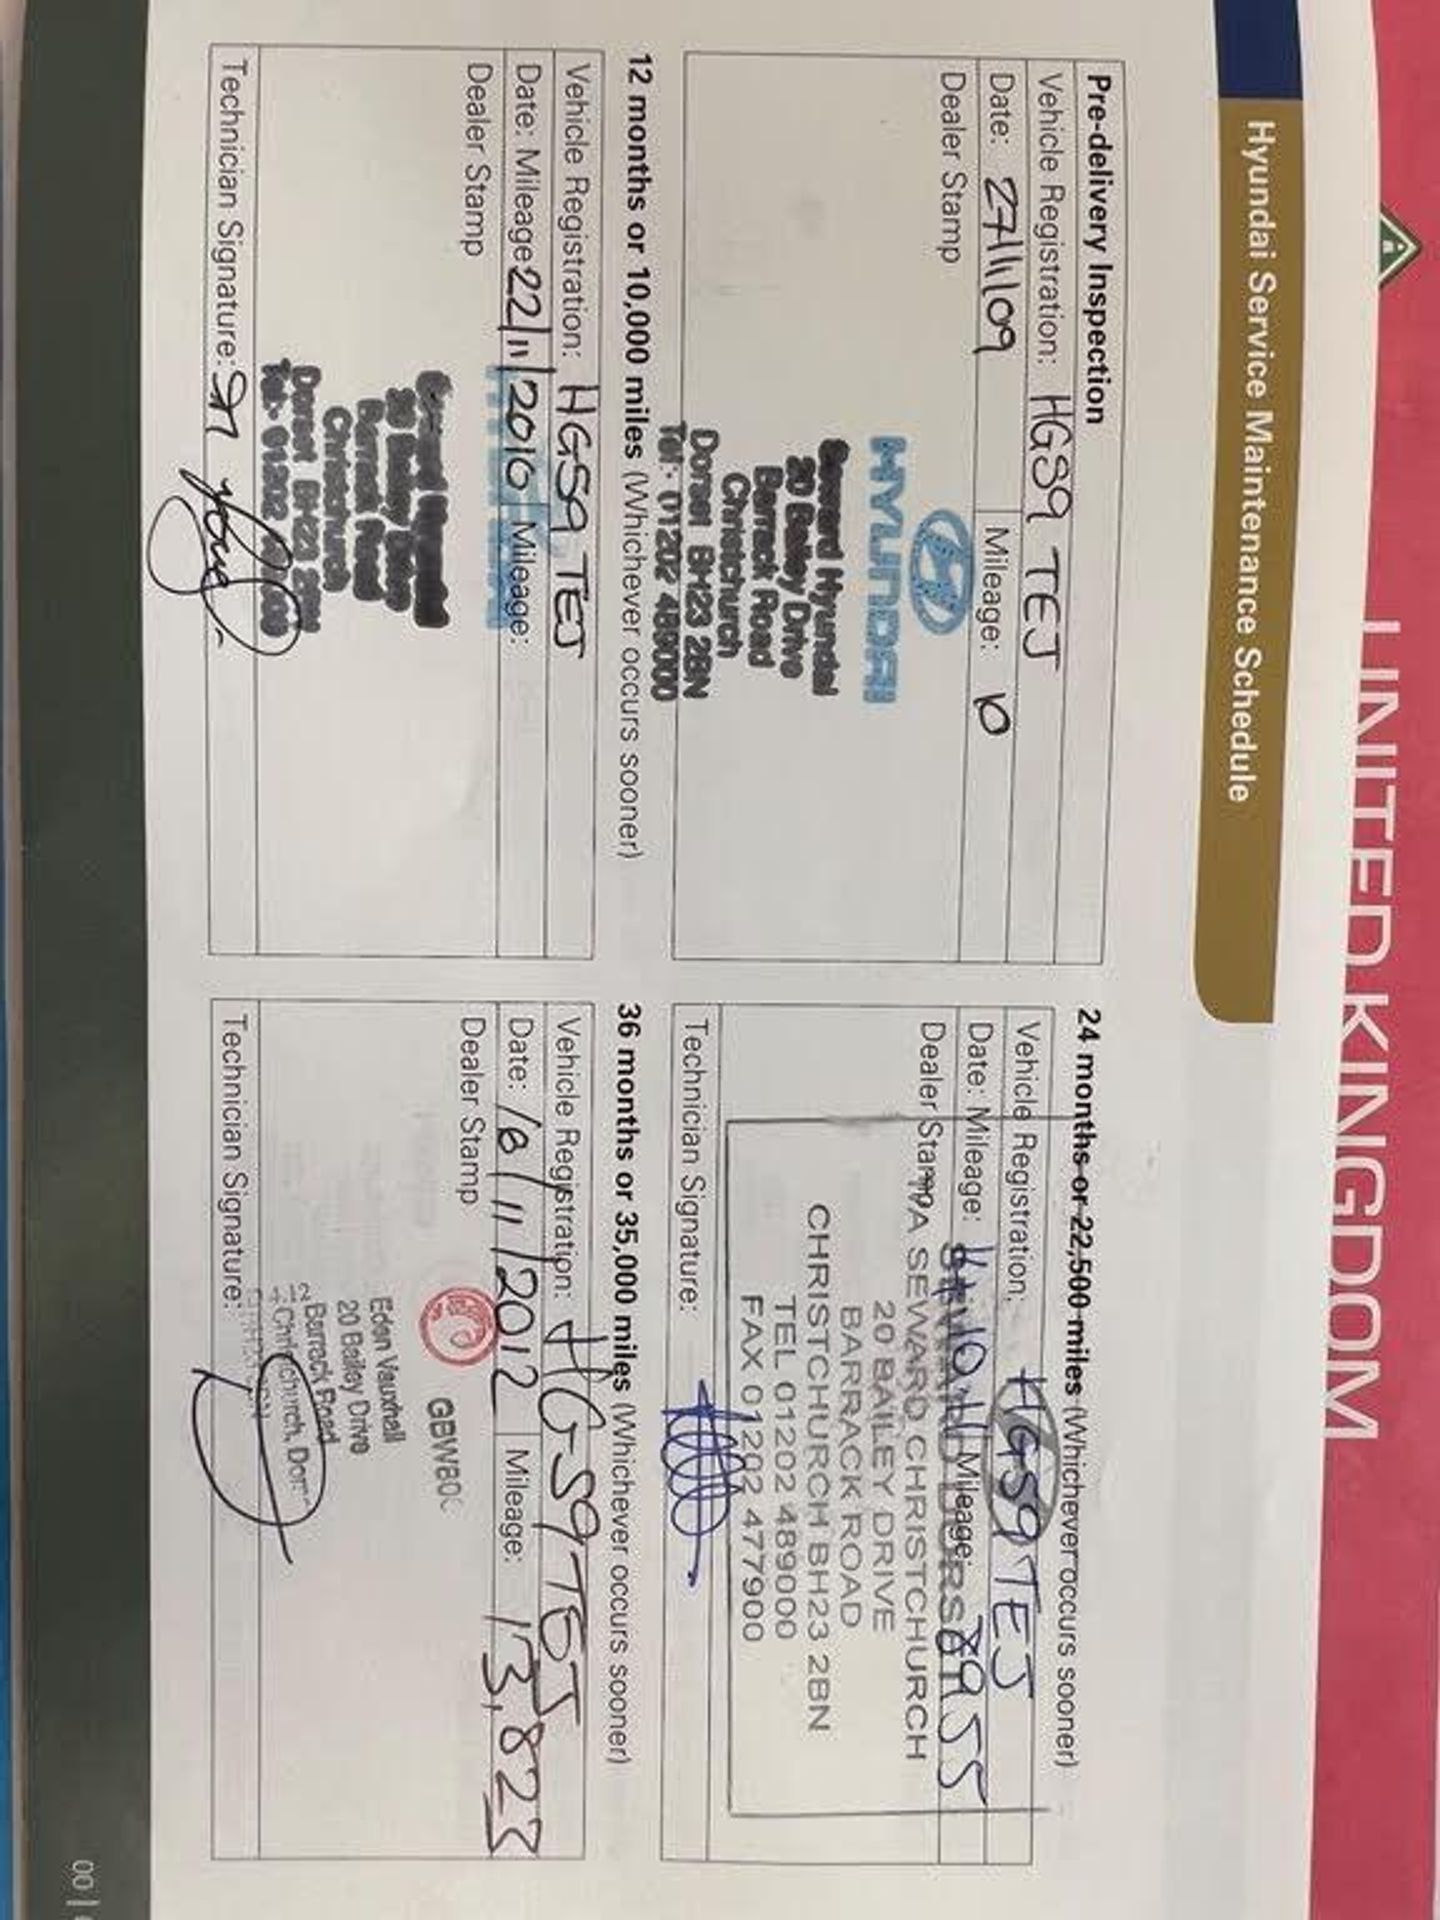 UNITED KINGDOM
Hyundai Service Maintenance Schedule
Pre-delivery Inspection
Vehicle Registration: HG59 TEJ
Date: 27/11/09 Mileage: 10
Dealer Stamp
HYUNDAI
Seward Hyundai
20 Bailey Drive
Barrack Road
Christchurch
Dorset BH23 2BN
Tel:- 01202 489000
12 months or 10,000 miles (Whichever occurs sooner)
Vehicle Registration: HG59 TEJ
Date: Mileage 22/11/2010 Mileage:
Dealer Stamp
20 Bailey Drive
Barrack Road
Christchurch
Dorset BH23
Tel:- 01202
Technician Signature:
24 months or 22,500 miles (Whichever occurs sooner)
Vehicle Registration: HG59 TEJ
Date: Mileage: Mileage: 8955
Dealer Stamp
T/A SEWARD CHRISTCHURCH
20 BAILEY DRIVE
BARRACK ROAD
CHRISTCHURCH BH23 2BN
TEL 01202 489000
FAX 01202 477900
Technician Signature:
36 months or 35,000 miles (Whichever occurs sooner)
Vehicle Registration: HG59 TEJ
Date: 16/11/2012 Mileage: 13,823
Dealer Stamp
GBW80
Eden Vauxhall
20 Bailey Drive
Barrack Road
Christchurch, Dor
Technician Signature:
00 |